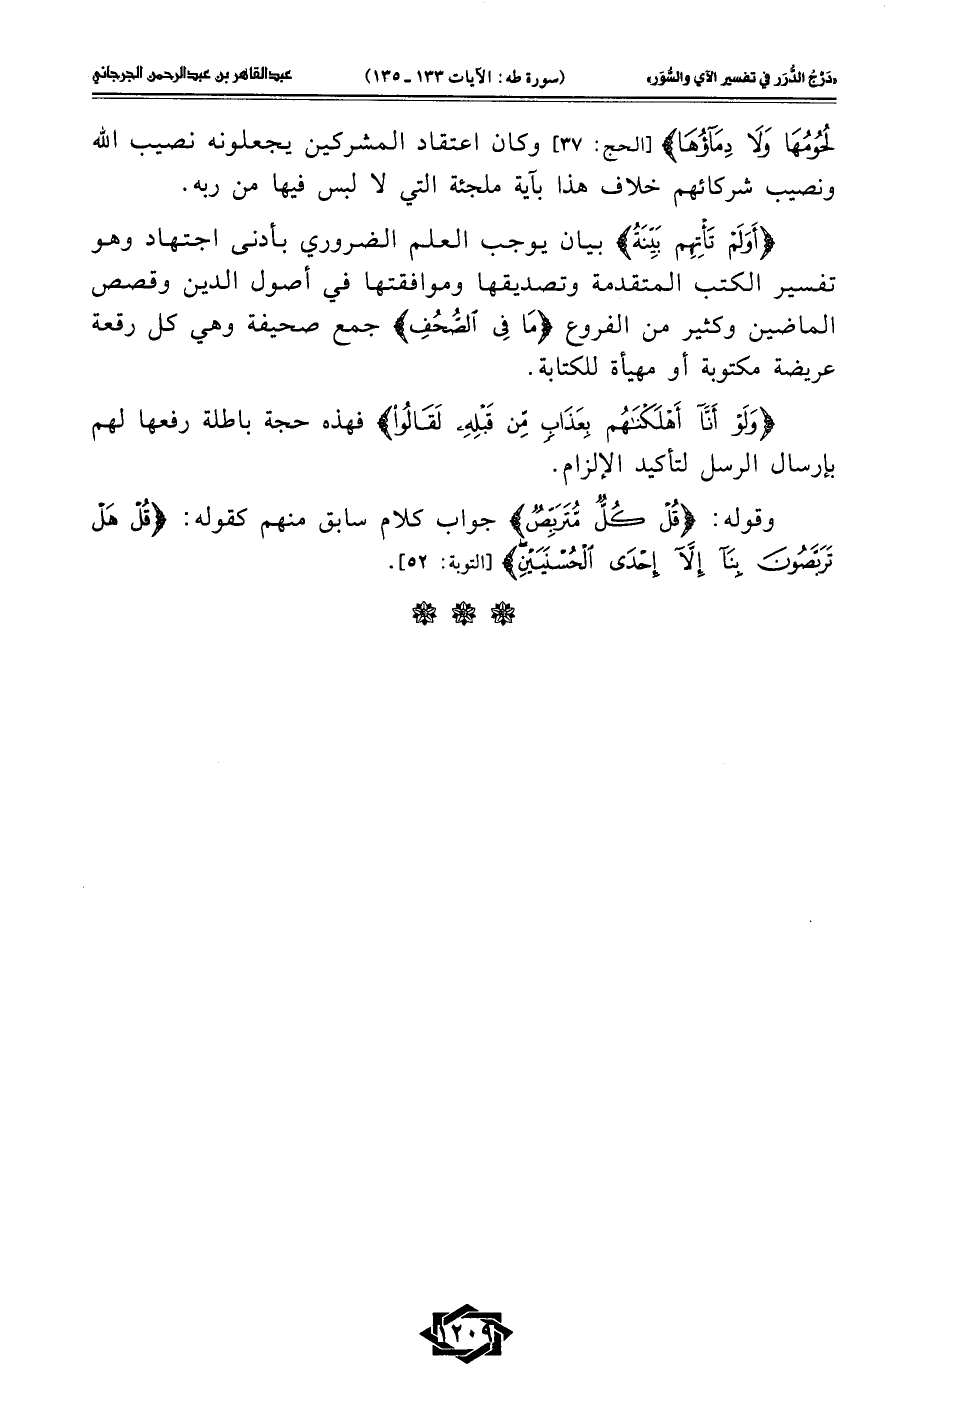 «دَرْجُ الدُّرَر في تفسير الآي والسُّوَر» (سورة طه: الآيات ١٣٣ ـ ١٣٥) عبدالقاهر بن عبدالرحمن الجرجاني
لُحُومُهَا وَلَا دِمَآؤُهَا﴾ [الحج: ٣٧] وكان اعتقاد المشركين يجعلونه نصيب الله
ونصيب شركائهم خلاف هذا بآية ملجئة التي لا لبس فيها من ربه.
﴿أَوَلَمْ تَأْتِهِم بَيِّنَةُ﴾ بيان يوجب العلم الضروري بأدنى اجتهاد وهو
تفسير الكتب المتقدمة وتصديقها وموافقتها في أصول الدين وقصص
الماضين وكثير من الفروع ﴿مَا فِى ٱلصُّحُفِ﴾ جمع صحيفة وهي كل رقعة
عريضة مكتوبة أو مهيأة للكتابة.
﴿وَلَوْ أَنَّآ أَهْلَكْنَٰهُم بِعَذَابٍ مِّن قَبْلِهِۦ لَقَالُواْ﴾ فهذه حجة باطلة رفعها لهم
بإرسال الرسل لتأكيد الإلزام.
وقوله: ﴿قُلْ كُلٌّ مُّتَرَبِّصٌ﴾ جواب كلام سابق منهم كقوله: ﴿قُلْ هَلْ
تَرَبَّصُونَ بِنَآ إِلَّآ إِحْدَى ٱلْحُسْنَيَيْنِۖ﴾ [التوبة: ٥٢].
١٢٠٩